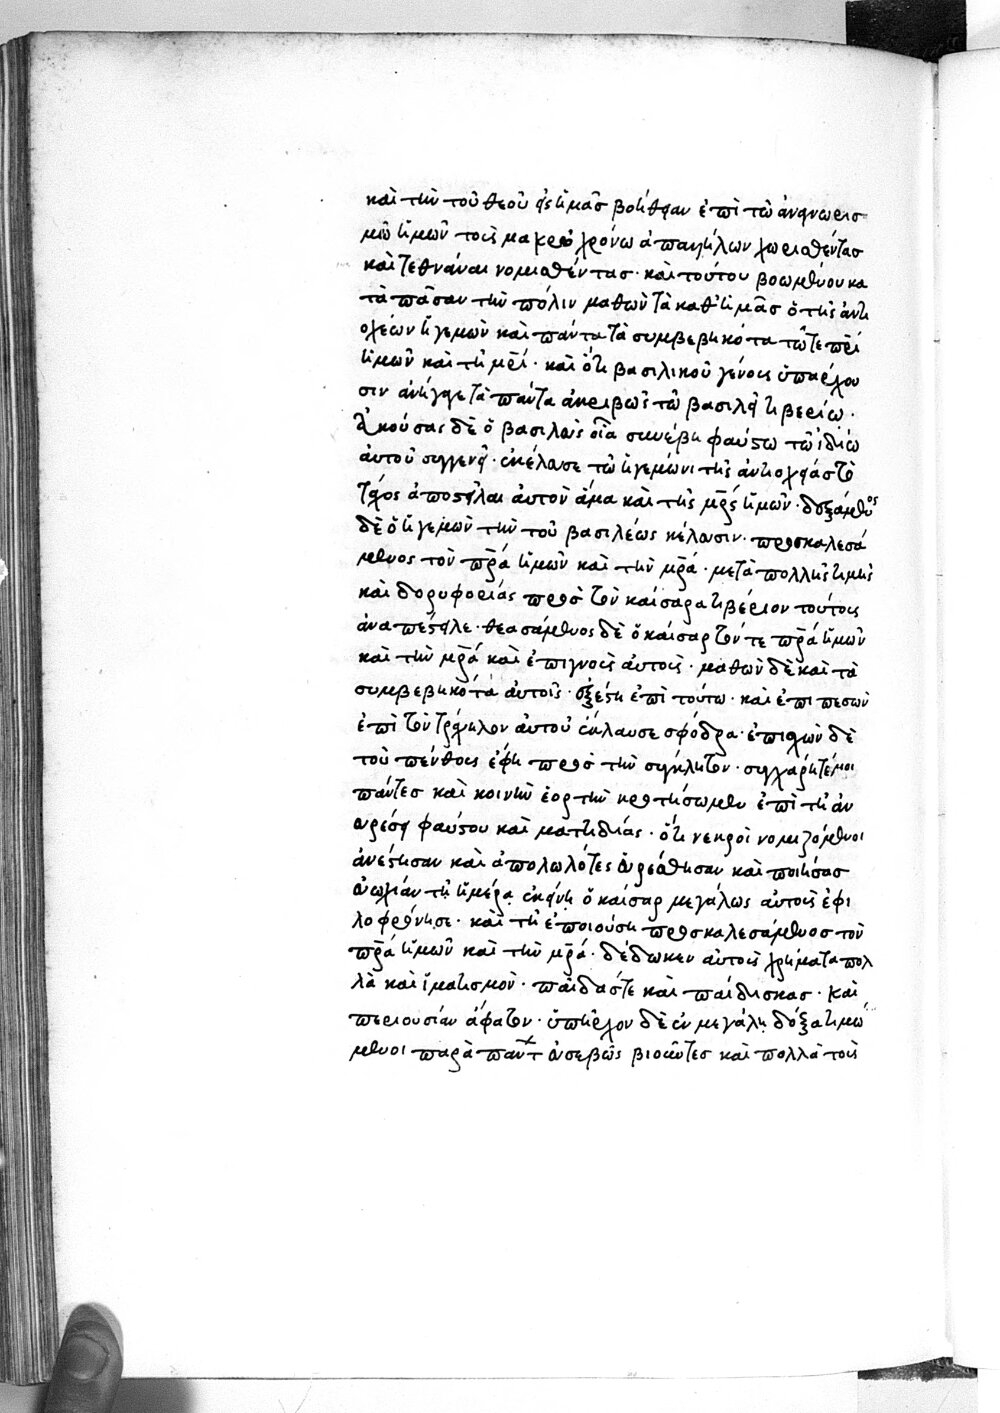 καὶ τὴν τοῦ θεοῦ εἰς ἡμᾶς βοήθειαν ἐπὶ τῶ ἀναγνωρισ
μῶ ἡμῶν τοῖς μακρῶ χρόνω ἀπαλλήλων χωρισθέντας
καὶ τεθνάναι νομισθέντας · καὶ τούτου βοωμένου κα
τὰ πᾶσαν τὴν πόλιν μαθὼν τὰ καθ' ἡμᾶς ὁ τῆς ἀντι
οχέων ἡγεμὼν καὶ πάντα τὰ συμβεβηκότα τῶ τε πρὶ
ἡμῶν καὶ τῆ μρὶ · καὶ ὅτι βασιλικοῦ γένους ὑπάρχου
σιν ἀνήγγειλε τὰ πάντα ἀκριβῶς τῶ βασιλεῖ τιβερίω ·
Ἀκούσας δὲ ὁ βασιλεὺς οἷα συνέβη φαύστω τῶ ἰδίω
αὐτοῦ συγγενεῖ · ἐκέλευσε τῶ ἡγεμόνι τῆς ἀντιοχείας τὸ
τάχος ἀποστεῖλαι αὐτὸν ἅμα καὶ τῆς μρς ἡμῶν · δεξάμενος
δὲ ὁ ἡγεμὼν τὴν τοῦ βασιλέως κέλευσιν · προσκαλεσά
μενος τὸν πρα ἡμῶν καὶ τὴν μρα · μετὰ πολλῆς τιμῆς
καὶ δορυφορίας πρὸς τὸν καίσαρα τιβέριον τούτους
ἀναπέστειλε · θεασάμενος δὲ ὁ καίσαρ τόν τε πρα ἡμῶν
καὶ τὴν μρα καὶ ἐπιγνοὺς αὐτοὺς · μαθὼν δὲ καὶ τὰ
συμβεβηκότα αὐτοῖς · ἐξέστη ἐπὶ τούτω · καὶ ἐπιπεσὼν
ἐπὶ τὸν τράχηλον αὐτοῦ ἔκλαυσε σφόδρα · ἐπισχὼν δὲ
τοῦ πένθους ἔφη πρὸς τὴν σύγκλητον · συγχάρητέ μοι
πάντες καὶ κοινὴν ἑορτὴν κροτήσωμεν ἐπὶ τῆ ἀν
ευρέσει φαύστου καὶ ματθιδίας · ὅτι νεκροὶ νομιζόμενοι
ἀνέστησαν καὶ ἀπολωλότες εὑρέθησαν καὶ ποιήσας
εὐωχίαν τῆ ἡμέρα ἐκείνη ὁ καίσαρ μεγάλως αὐτοὺς ἐφι
λοφρόνησε · καὶ τῆ ἐπιούση προσκαλεσάμενος τὸν
πρα ἡμῶν καὶ τὴν μρα · δέδωκεν αὐτοῖς χρήματα πολ
λὰ καὶ ἱματισμὸν · παῖδάς τε καὶ παιδίσκας · καὶ
περιουσίαν ἄφατον · ὑπῆρχον δὲ ἐν μεγάλη δόξα τιμώ
μενοι παρὰ παντ εὐσεβῶς βιοῦντες καὶ πολλὰ τοῖς